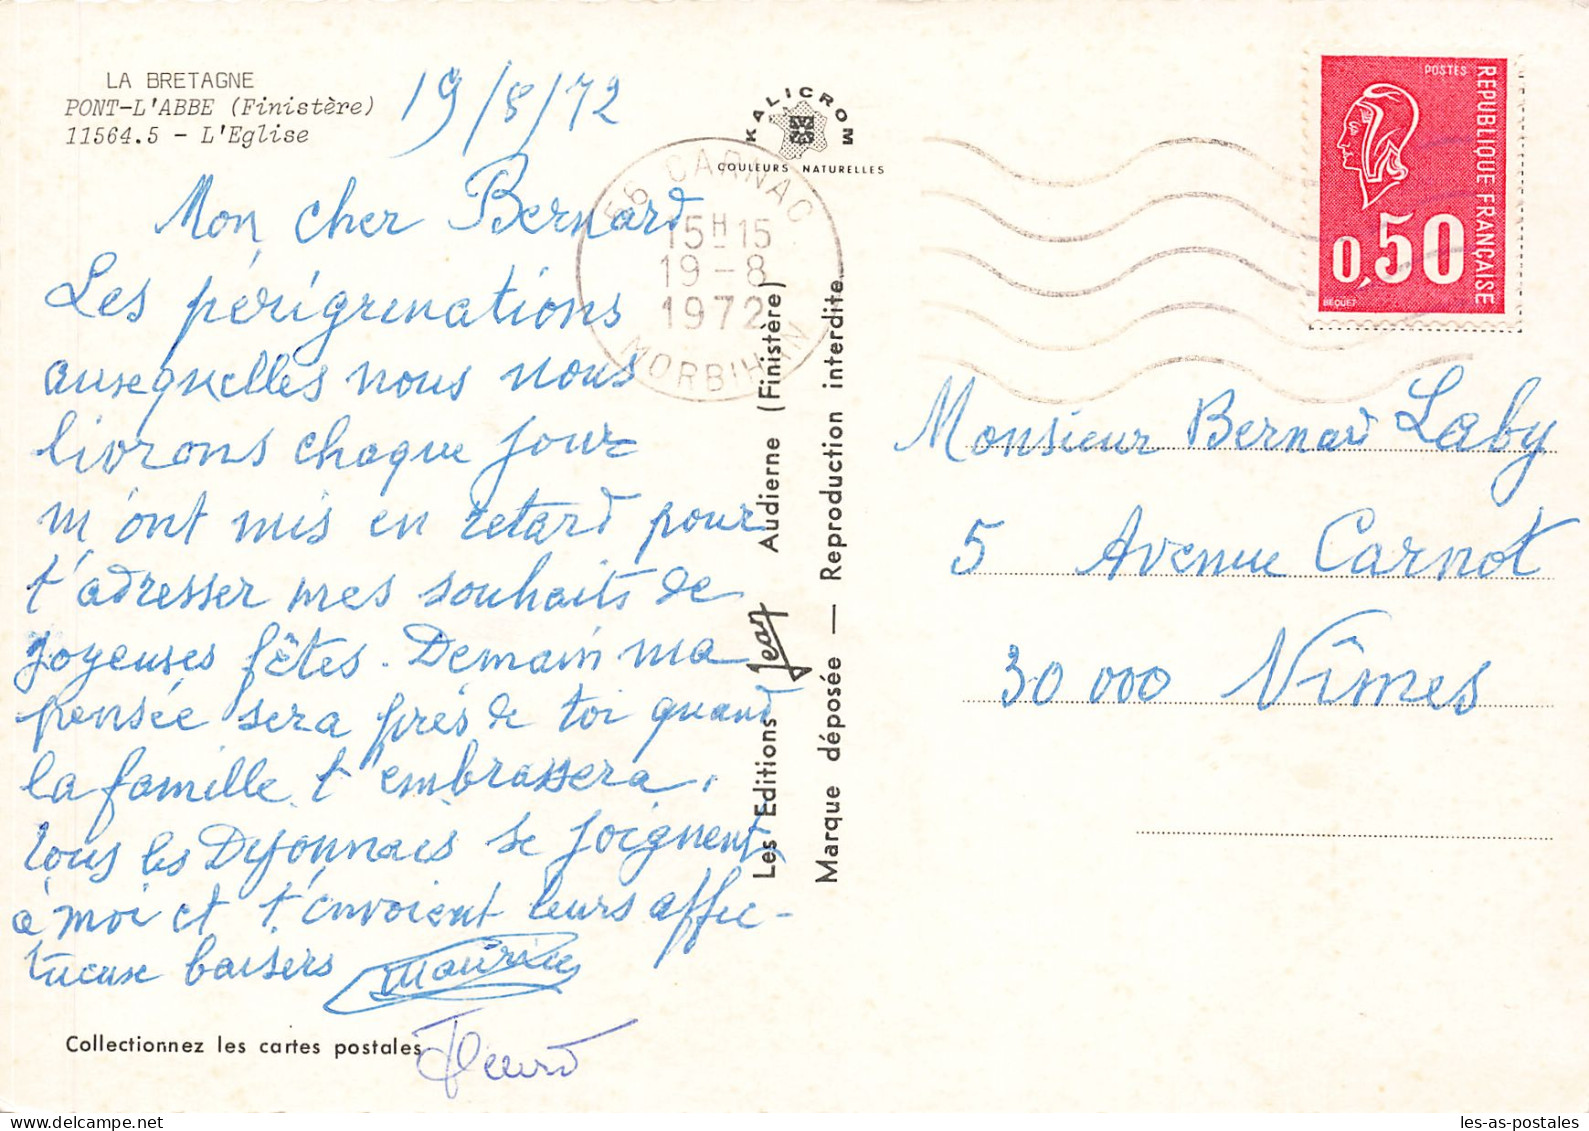 LA BRETAGNE
PONT-L'ABBE (Finistère)
11564.5 - L'Eglise
19/8/72
KALICROM
COULEURS NATURELLES
56 CARNAC
15H15
19-8
1972
MORBIHAN
POSTES
REPUBLIQUE FRANÇAISE
0,50
BEQUET
Mon cher Bernard
Les périgrinations
auxquelles nous nous
livrons chaque jour
m'ont mis en retard pour
t'adresser mes souhaits de
joyeuses fêtes. Demain ma
pensée sera près de toi quand
la famille t'embrassera.
Tous les Dijonnais se joignent
à moi et t'envoient leurs affec-
tueuse baisers
Maurice
Collectionnez les cartes postales
Les Editions Jean Audierne (Finistère)
Marque déposée — Reproduction interdite
Monsieur Bernard Laby
5 Avenue Carnot
30 000 Nîmes
les-as-postales.com